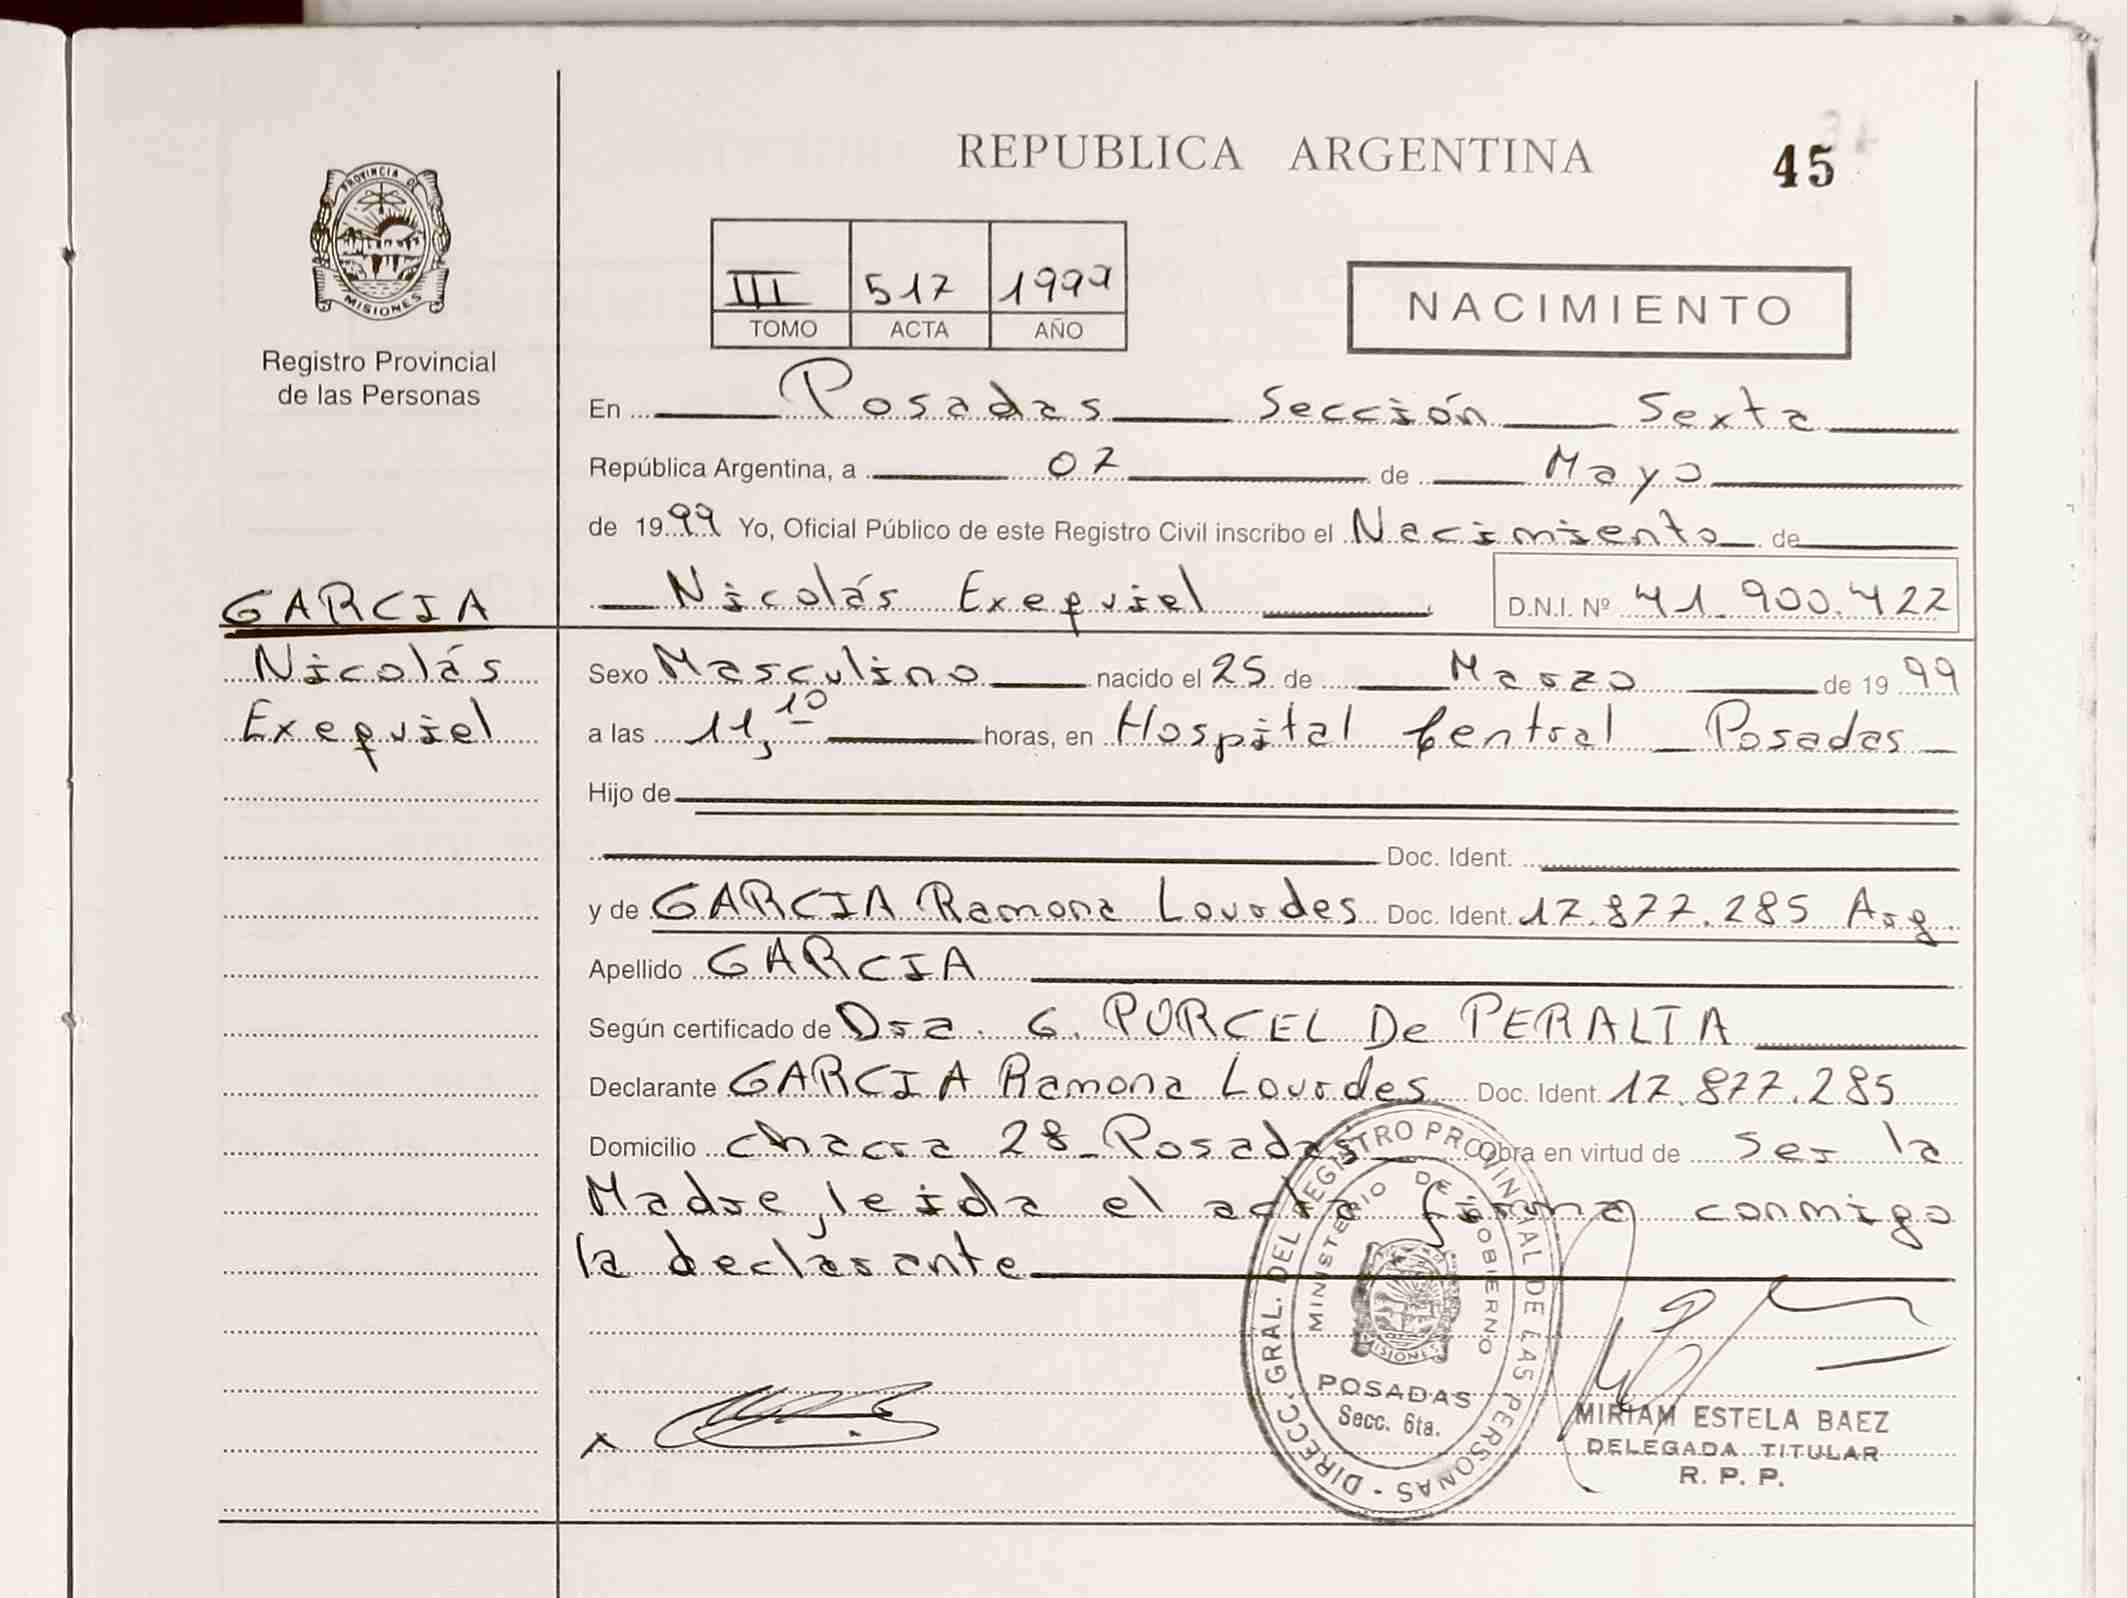 REPUBLICA ARGENTINA
45
PROVINCIA DE
MISIONES
Registro Provincial
de las Personas
III 517 1999
TOMO ACTA AÑO
NACIMIENTO
En Posadas Sección Sexta
República Argentina, a 07 de Mayo
de 1999 Yo, Oficial Público de este Registro Civil inscribo el Nacimiento de
Nicolás Exequiel D.N.I. Nº 41.900.422
GARCIA
Nicolás
Exequiel
Sexo Masculino nacido el 25 de Marzo de 1999
a las 11,10 horas, en Hospital Central Posadas
Hijo de
Doc. Ident.
y de GARCIA Ramona Lourdes Doc. Ident. 17.877.285 Arg.
Apellido GARCIA
Según certificado de Dra. G. PORCEL De PERALTA
Declarante GARCIA Ramona Lourdes Doc. Ident. 17.877.285
Domicilio chacra 28 - Posadas Obra en virtud de ser la
Madre, leida el acta firma conmigo
la declarante
DIRECC. GRAL. DEL REGISTRO PROVINCIAL DE LAS PERSONAS -
MINISTERIO DE GOBIERNO
MISIONES
POSADAS
Secc. 6ta.
MIRIAM ESTELA BAEZ
DELEGADA TITULAR
R. P. P.